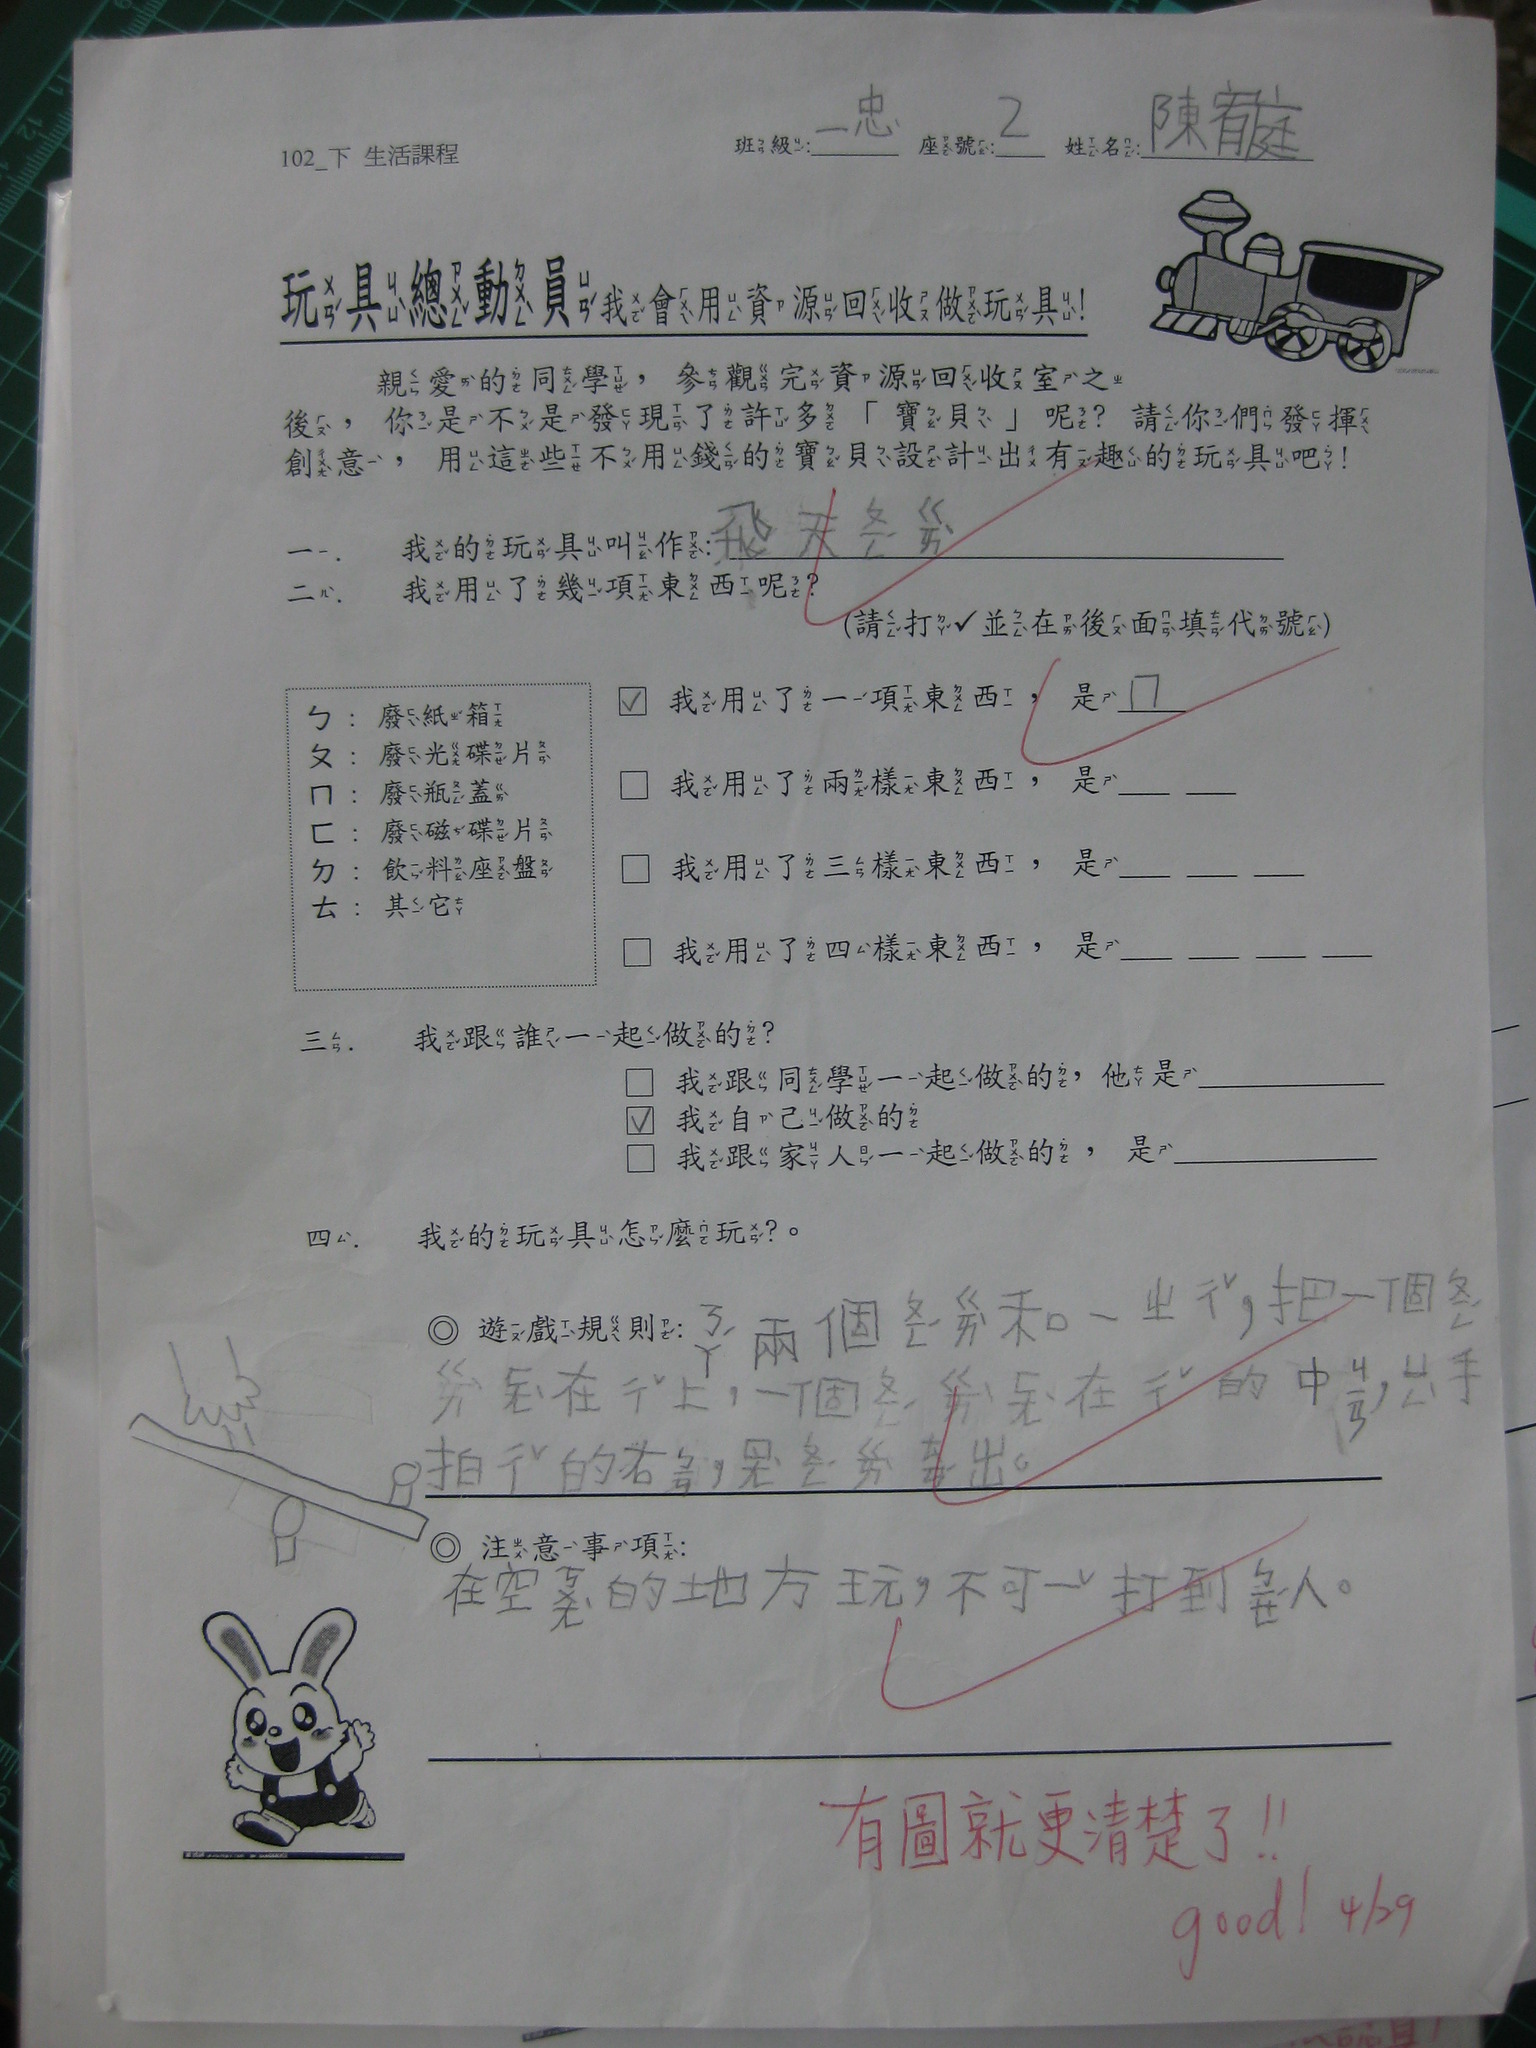 102_下 生活課程
班級:一忠 座號:2 姓名:陳宥庭
玩具總動員 我會用資源回收做玩具!
親愛的同學，參觀完資源回收室之
後，你是不是發現了許多「寶貝」呢? 請你們發揮
創意，用這些不用錢的寶貝設計出有趣的玩具吧!
一. 我的玩具叫作: 飛天ㄆㄥˊㄍㄞˋ
二. 我用了幾項東西呢?
(請打✓並在後面填代號)
ㄅ：廢紙箱
ㄆ：廢光碟片
ㄇ：廢瓶蓋
ㄈ：廢磁碟片
ㄉ：飲料座盤
ㄊ：其它
☑ 我用了一項東西，是ㄇ
□ 我用了兩樣東西，是
□ 我用了三樣東西，是
□ 我用了四樣東西，是
三. 我跟誰一起做的?
□ 我跟同學一起做的，他是
☑ 我自己做的
□ 我跟家人一起做的，是
四. 我的玩具怎麼玩?。
◎ 遊戲規則: ㄋㄚˊ兩個ㄆㄥˊㄍㄞˋ和一ㄓ ㄔˇ，把一個ㄆㄥˊ
ㄍㄞˋ 在ㄔˇ上，一個ㄆㄥˊㄍㄞˋ 在ㄔˇ的中ㄐㄧㄢ，手
拍ㄔˇ的右ㄅㄧㄢ，ㄆㄥˊㄍㄞˋ 出。
◎ 注意事項:
在空ㄎㄨㄤˋ的地方玩，不可ㄧˇ打到ㄅㄧㄝˊ人。
有圖就更清楚了!!
good! 4/29